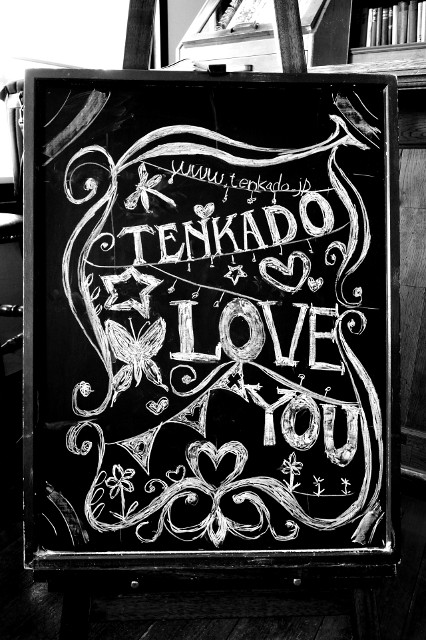 www.tenkado.jp
TENKADO
LOVE
YOU